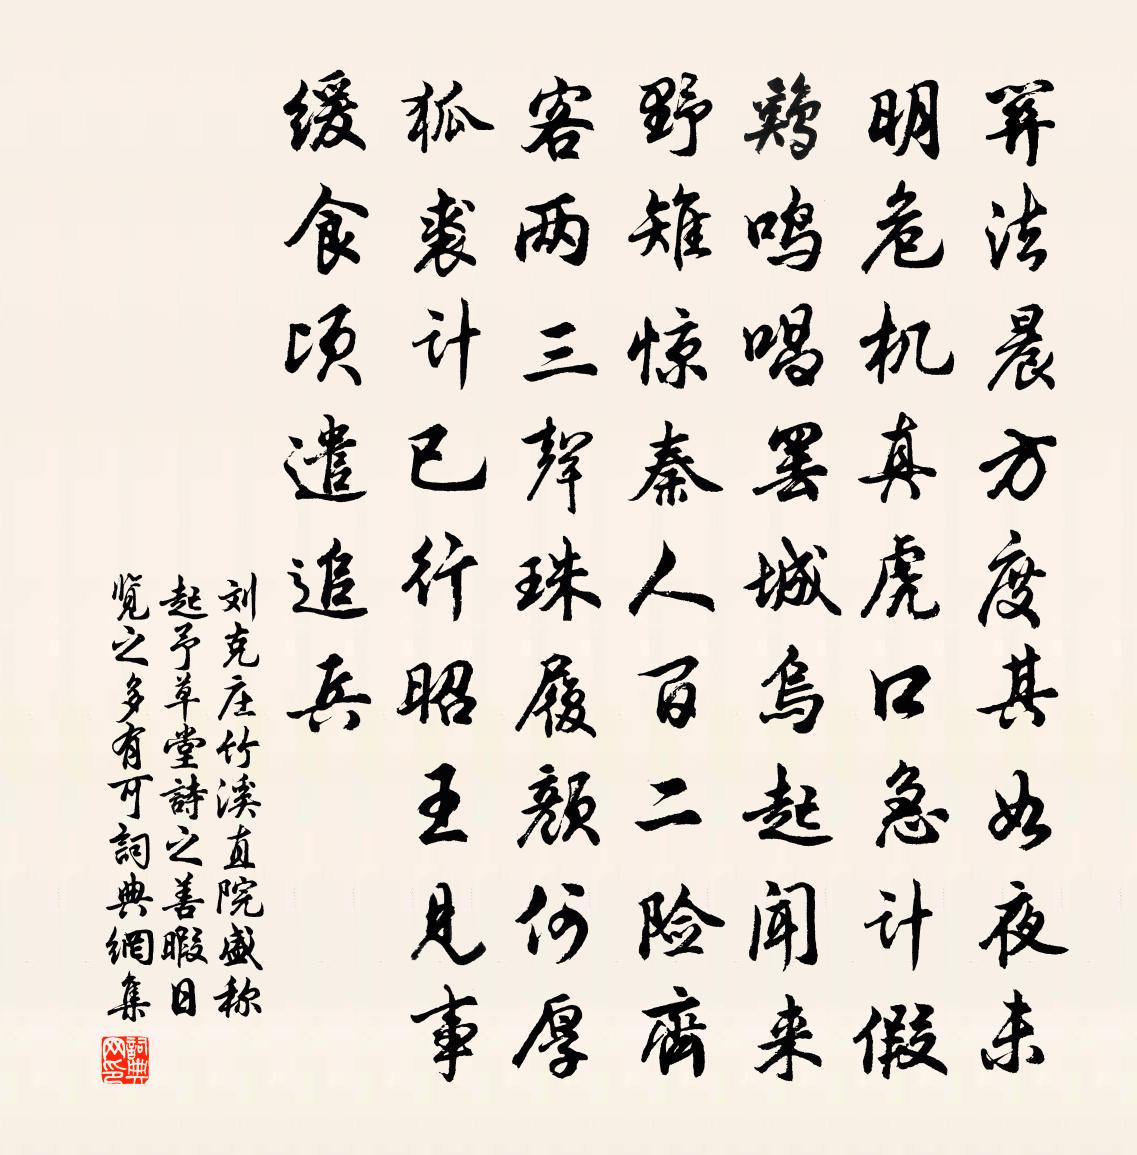 关法晨方度其如夜未
明危机真虎口急计假
鷄鸣唱罢城烏起闻来
野雉惊秦人百二险齊
客两三聲珠履颜何厚
狐裘计已行昭王见事
缓食顷遣追兵
刘克庄竹溪直院盛称
起予草堂詩之善暇日
览之多有可詞典網集
詞典网印